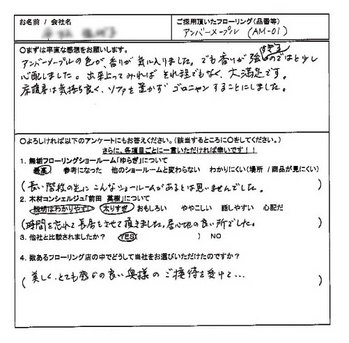 お名前 / 会社名
ご採用頂いたフローリング(品番等)
アンバーメープル (AM-01)
○まずは率直な感想をお願いします。
アンバーメープルの色が、香りが気に入りました。でも香りが強すぎるのではと少し
心配しました。出来上ってみれば それ程でもなく、大満足です。
床暖房は気持ち良く、ソファを置かず ゴロニャン することにしました。
○よろしければ以下のアンケートにもお答えください。(該当するところに○をしてください。)
さらに、各項目ごとに一言いただければ幸いです!!
1. 無垢フローリングショールーム「ゆらぎ」について
最高 参考になった 他のショールームと変わらない わかりにくい(場所 / 商品が見にくい)
(長い階段の先にこんなショールームがあるとは思いませんでした。)
2. 木材コンシェルジュ「前田 英樹」について
説明はわかりやすい 太りすぎ おもしろい ややこしい 話しやすい 心配だ
(時間を忘れて長居をさせて頂きました。居心地の良い所でした。)
3. 他社と比較されましたか? YES( ) NO
4. 数あるフローリング店の中でどうして当社をお選びいただけたのですか?
(美しく、とても感じの良い奥様の ご接待を受けて...)